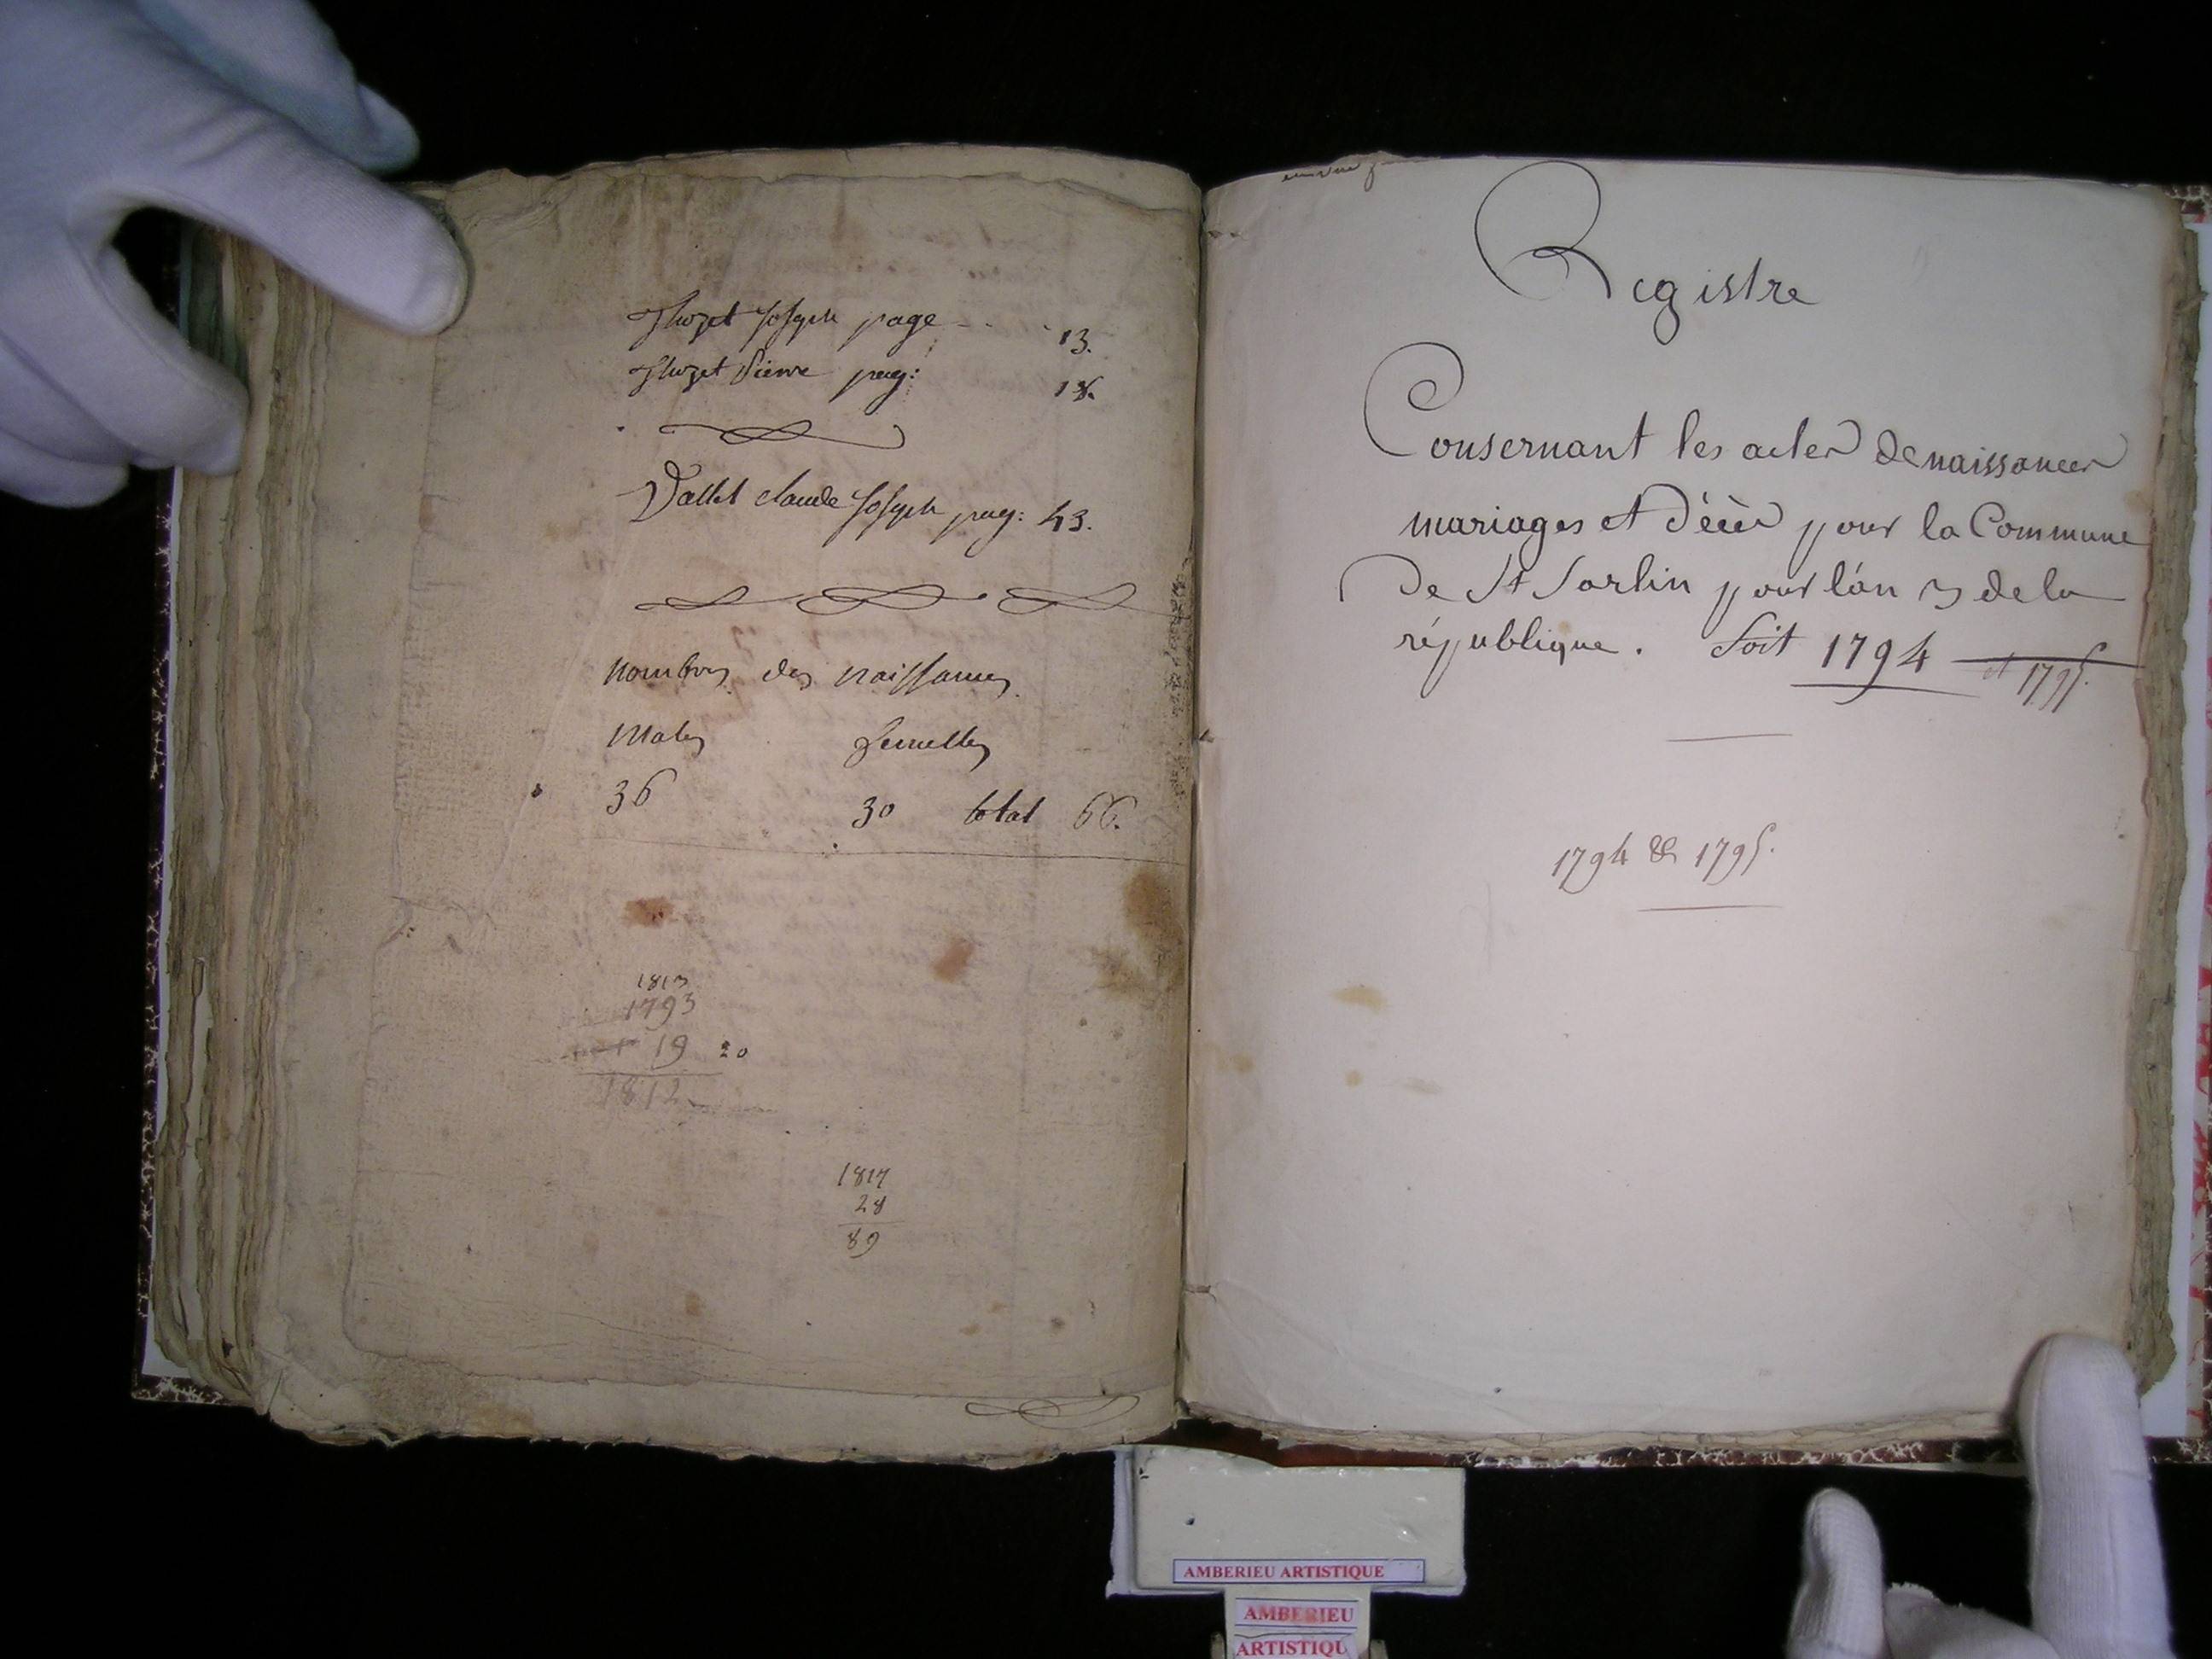 Thozet Joseph page - . . 13.
Thozet Pierre pag: 18.
Vallet claude Joseph pag: 43.
nombres des naissances
Males femelles
36 30 total 66.
1813
1793
19 20
1812
1817
28
89
Registre
Consernant les actes de naissances
mariages et Décès pour la Commune
De St Sorlin pour l'án 3 de la
république. Soit 1794 et 1795.
1794 & 1795.
AMBERIEU ARTISTIQUE
AMBERIEU
ARTISTIQU